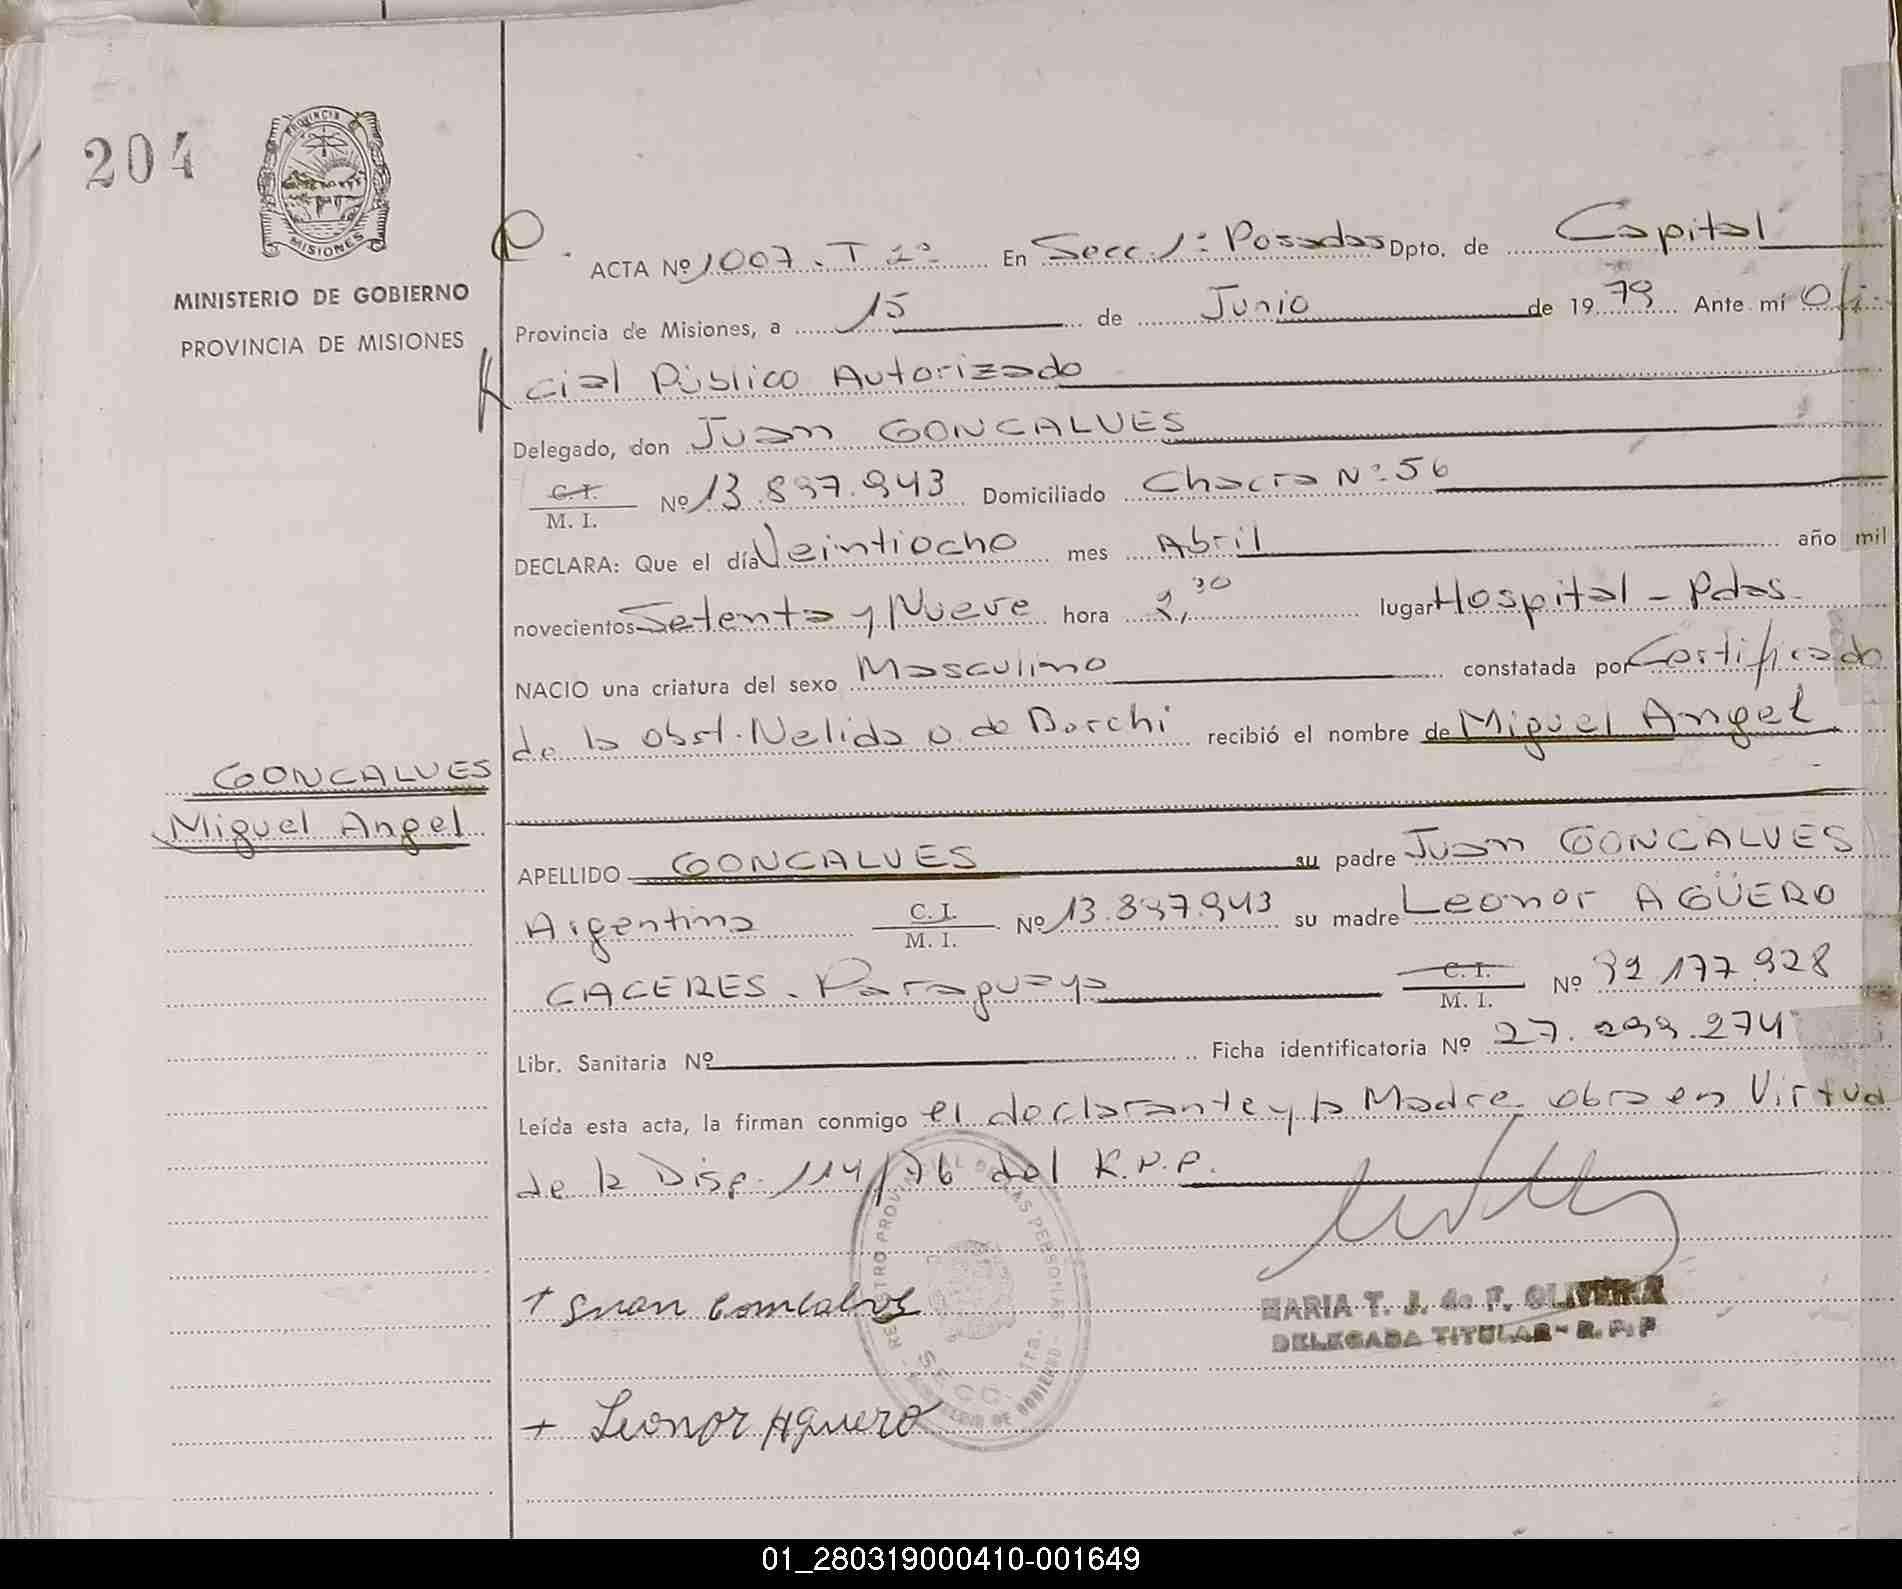 204
PROVINCIA
MISIONES
MINISTERIO DE GOBIERNO
PROVINCIA DE MISIONES
ACTA Nº 1007. T 2º En Secc. 1ª Posadas Dpto. de Capital
Provincia de Misiones, a 15 de Junio de 1979 Ante mí Ofi-
cial Público Autorizado
Delegado, don Juan GONCALVES
C. I.
M. I. Nº 13.897.943 Domiciliado Chacra Nº 56
DECLARA: Que el día Veintiocho mes Abril año mil
novecientos Setenta y Nueve hora 2,30 lugar Hospital - Pdas.
NACIO una criatura del sexo Masculino constatada por Certificado
de la Obst. Nelida de Borchi recibió el nombre de Miguel Angel
GONCALVES
Miguel Angel
APELLIDO GONCALVES su padre Juan GONCALVES
Argentino C. I. M. I. Nº 13.897.943 su madre Leonor AGÜERO
CACERES. Paraguaya C. I. M. I. Nº 92 177.928
Libr. Sanitaria Nº Ficha identificatoria Nº 27.299.274
Leída esta acta, la firman conmigo el declarante y la Madre obra en Virtud
de la Disp. 114/76 del R.P.P.
+ Juan Goncalves
MARIA T. J. de F. OLIVEIRA
DELEGADA TITULAR - R. P. P
+ Leonor Aguero
REGISTRO PROVINCIAL DE LAS PERSONAS
SECC. 1ra.
01_280319000410-001649